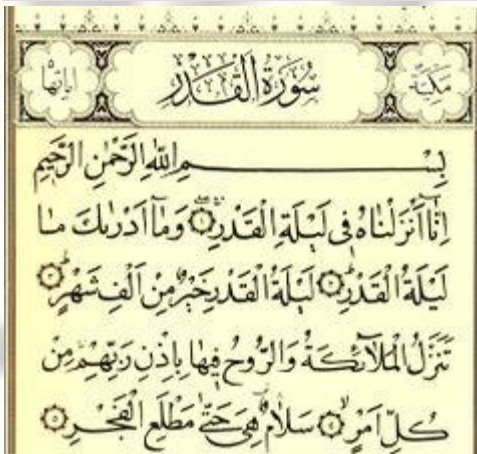 مكية سورة القدر اياتها ٥
بِسْمِ اللّٰهِ الرَّحْمٰنِ الرَّحِيمِ
اِنَّٓا اَنْزَلْنَاهُ فِى لَيْلَةِ الْقَدْرِ ۝١ وَمَٓا اَدْرٰيكَ مَا
لَيْلَةُ الْقَدْرِ ۝٢ لَيْلَةُ الْقَدْرِ خَيْرٌ مِنْ اَلْفِ شَهْرٍ ۝٣
تَنَزَّلُ الْمَلَٓائِكَةُ وَالرُّوحُ فِيهَا بِاِذْنِ رَبِّهِمْ مِنْ
كُلِّ اَمْرٍ ۝٤ سَلَامٌ هِىَ حَتّٰى مَطْلَعِ الْفَجْرِ ۝٥